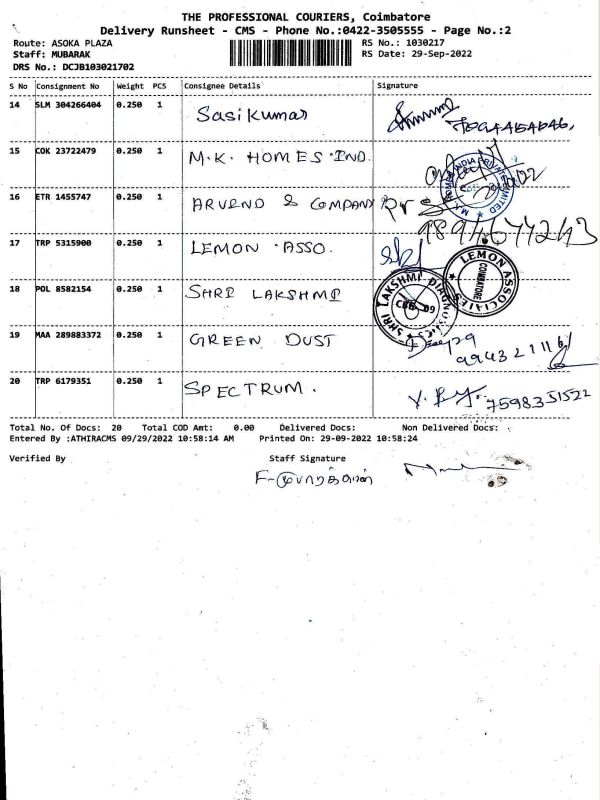 THE PROFESSIONAL COURIERS, Coimbatore
Delivery Runsheet - CMS - Phone No.:0422-3505555 - Page No.:2
Route: ASOKA PLAZA
RS No.: 1030217
Staff: MUBARAK
RS Date: 29-Sep-2022
DRS No.: DCJB103021702
S No Consignment No Weight PCS Consignee Details Signature
14 SLM 304266404 0.250 1 Sasikumar
15 COK 23722479 0.250 1 M.K. HOMES IND.
16 ETR 1455747 0.250 1 ARVEND & COMPANY
17 TRP 5315900 0.250 1 LEMON ASSO.
LEMON ASSOCIATES
COIMBATORE
18 POL 8582154 0.250 1 SHRI LAKSHMI
SHRI LAKSHMI DIAGNOSTICS
19 MAA 289883372 0.250 1 GREEN DUST
20 TRP 6179351 0.250 1 SPECTRUM. 7598351522
Total No. Of Docs: 20 Total COD Amt: 0.00 Delivered Docs: Non Delivered Docs:
Entered By :ATHIRACMS 09/29/2022 10:58:14 AM Printed On: 29-09-2022 10:58:24
Verified By Staff Signature